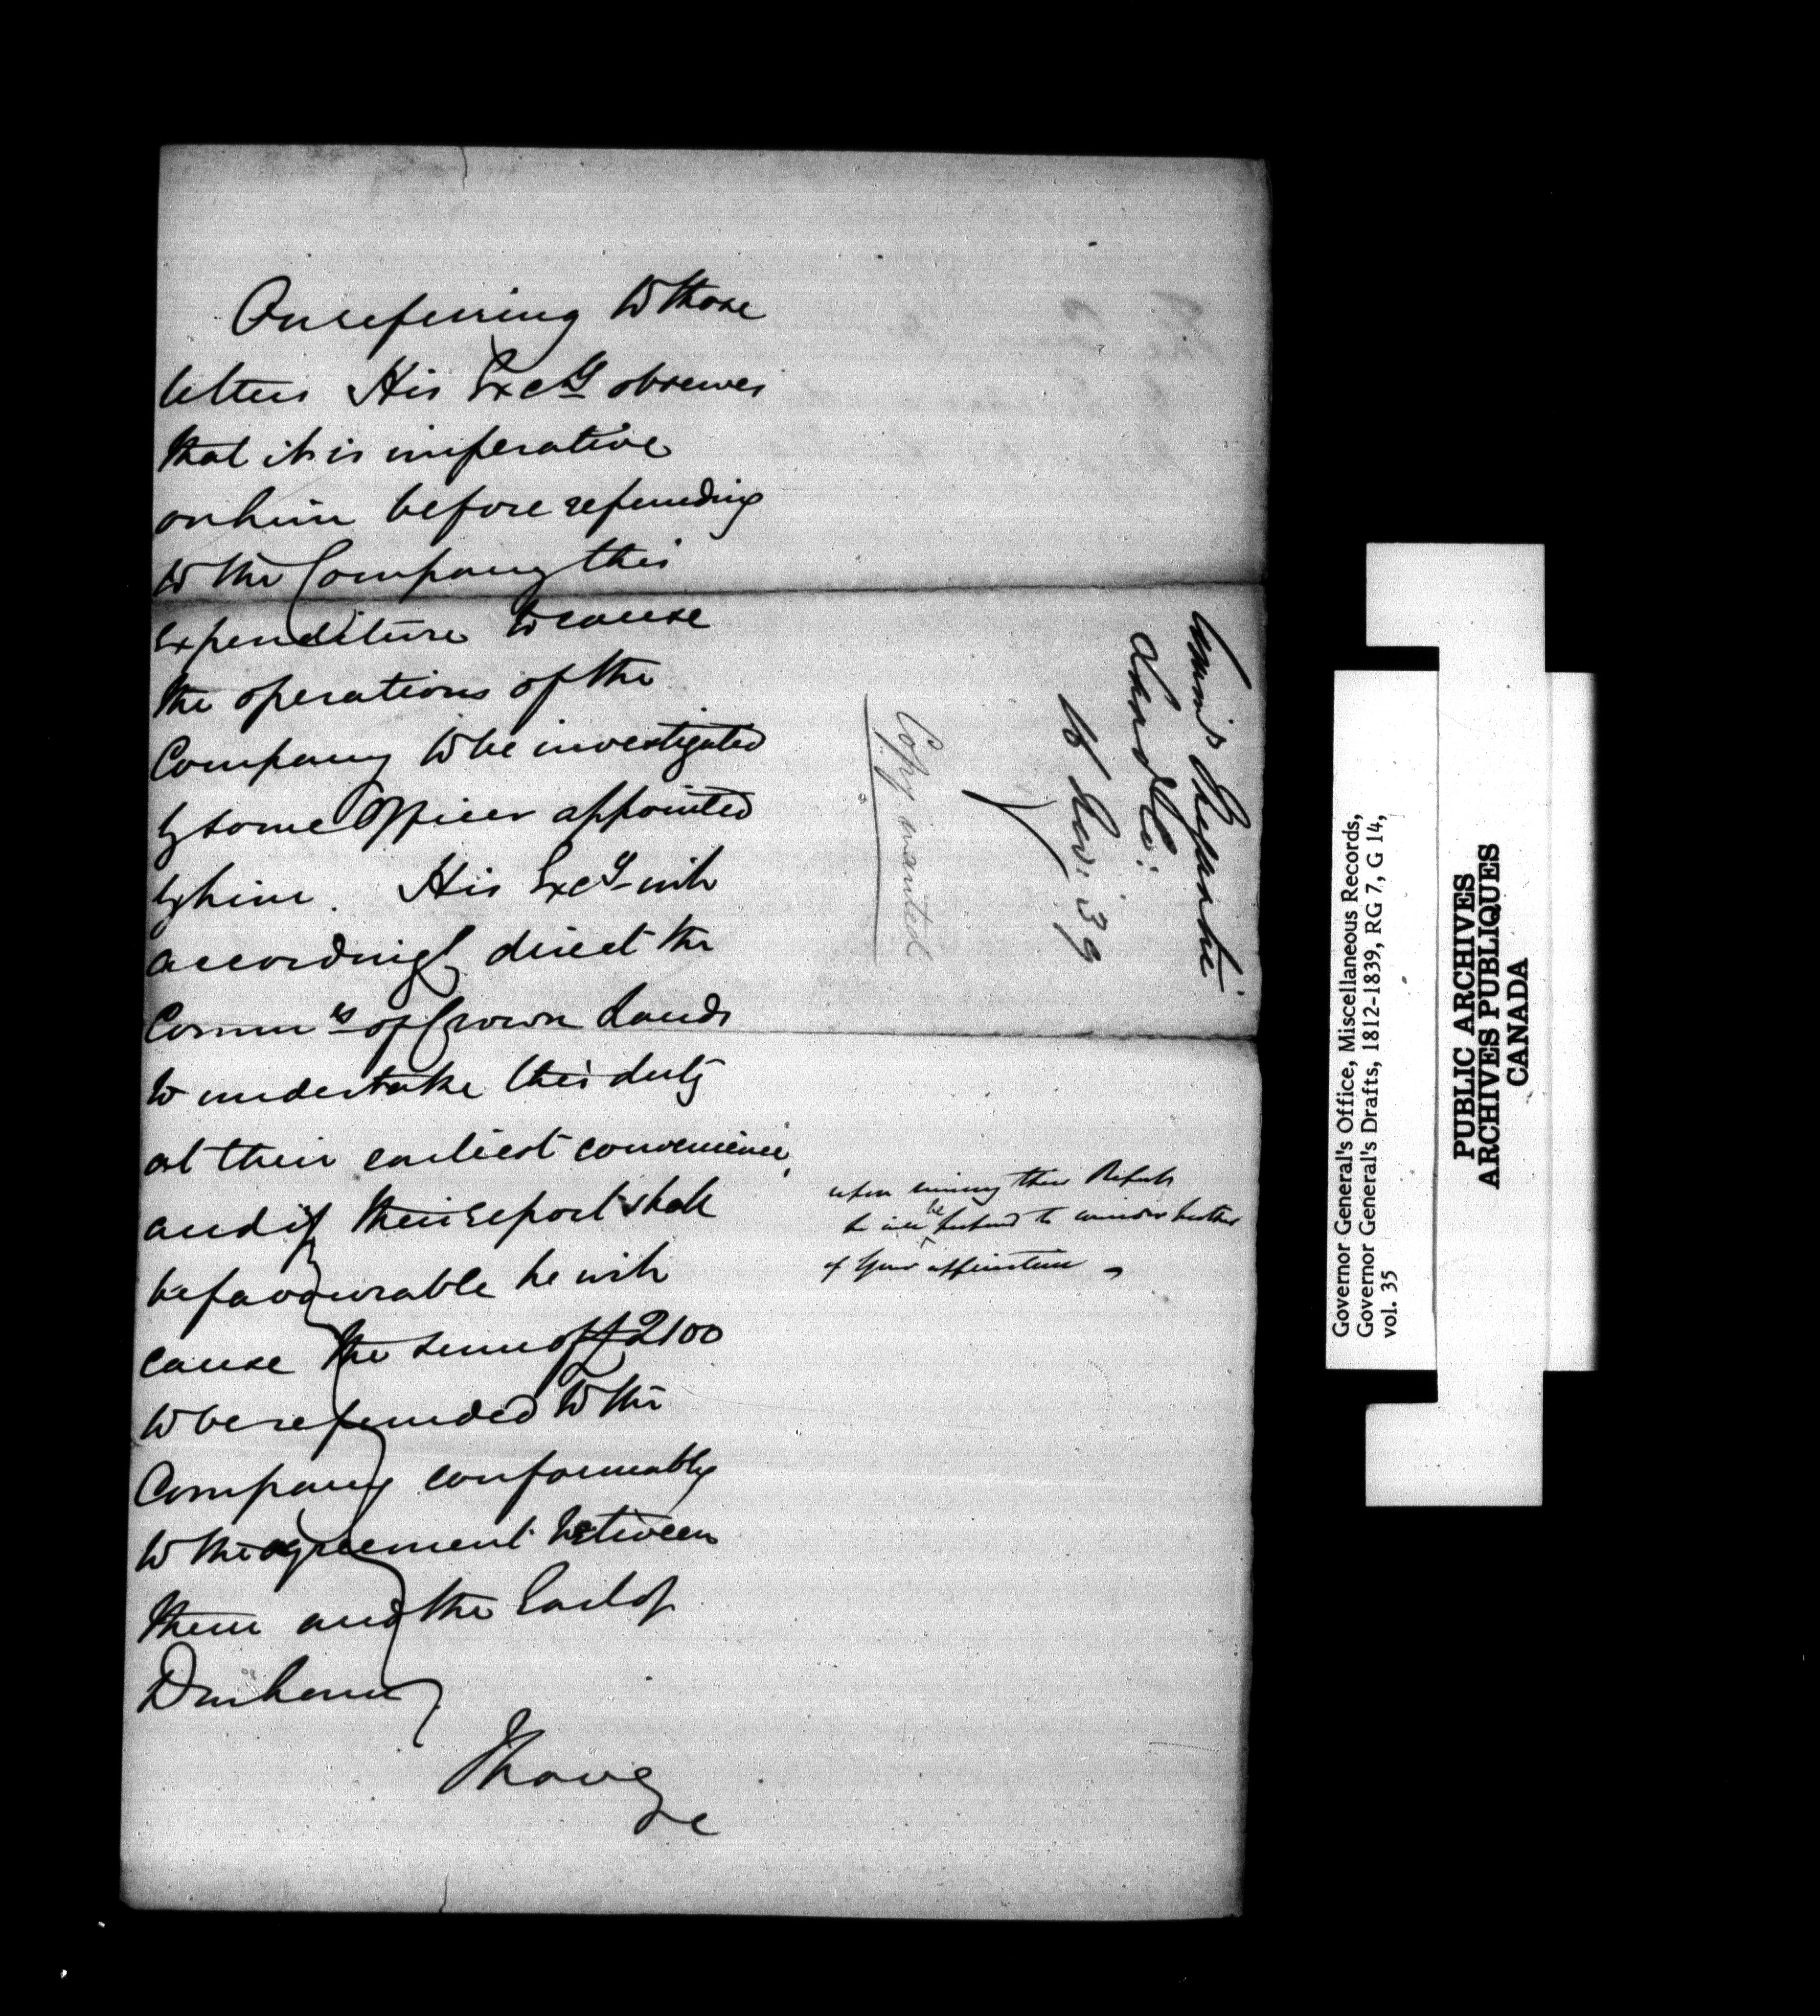 On referring to those
letters His Excy observes
that it is imperative
on him before refunding
to the Company this
expenditure to cause
the operations of the
Company to be investigated
by some Officer appointed
by him. His Excy will
accordingly direct the
Commrs of Crown Lands
to undertake this duty
at their earliest convenience,
and if their report shall
be favourable he will
cause the sum of £2100
to be refunded to the
Company conformably
to the agreement between
them and the Earl of
Durham
I have
&c
upon their Report
he will be prepared to consider further
of your application
Land Co:
16 Nov. 39
Copy wanted
Governor General's Office, Miscellaneous Records,
Governor General's Drafts, 1812-1839, RG 7, G 14,
vol. 35
PUBLIC ARCHIVES
ARCHIVES PUBLIQUES
CANADA